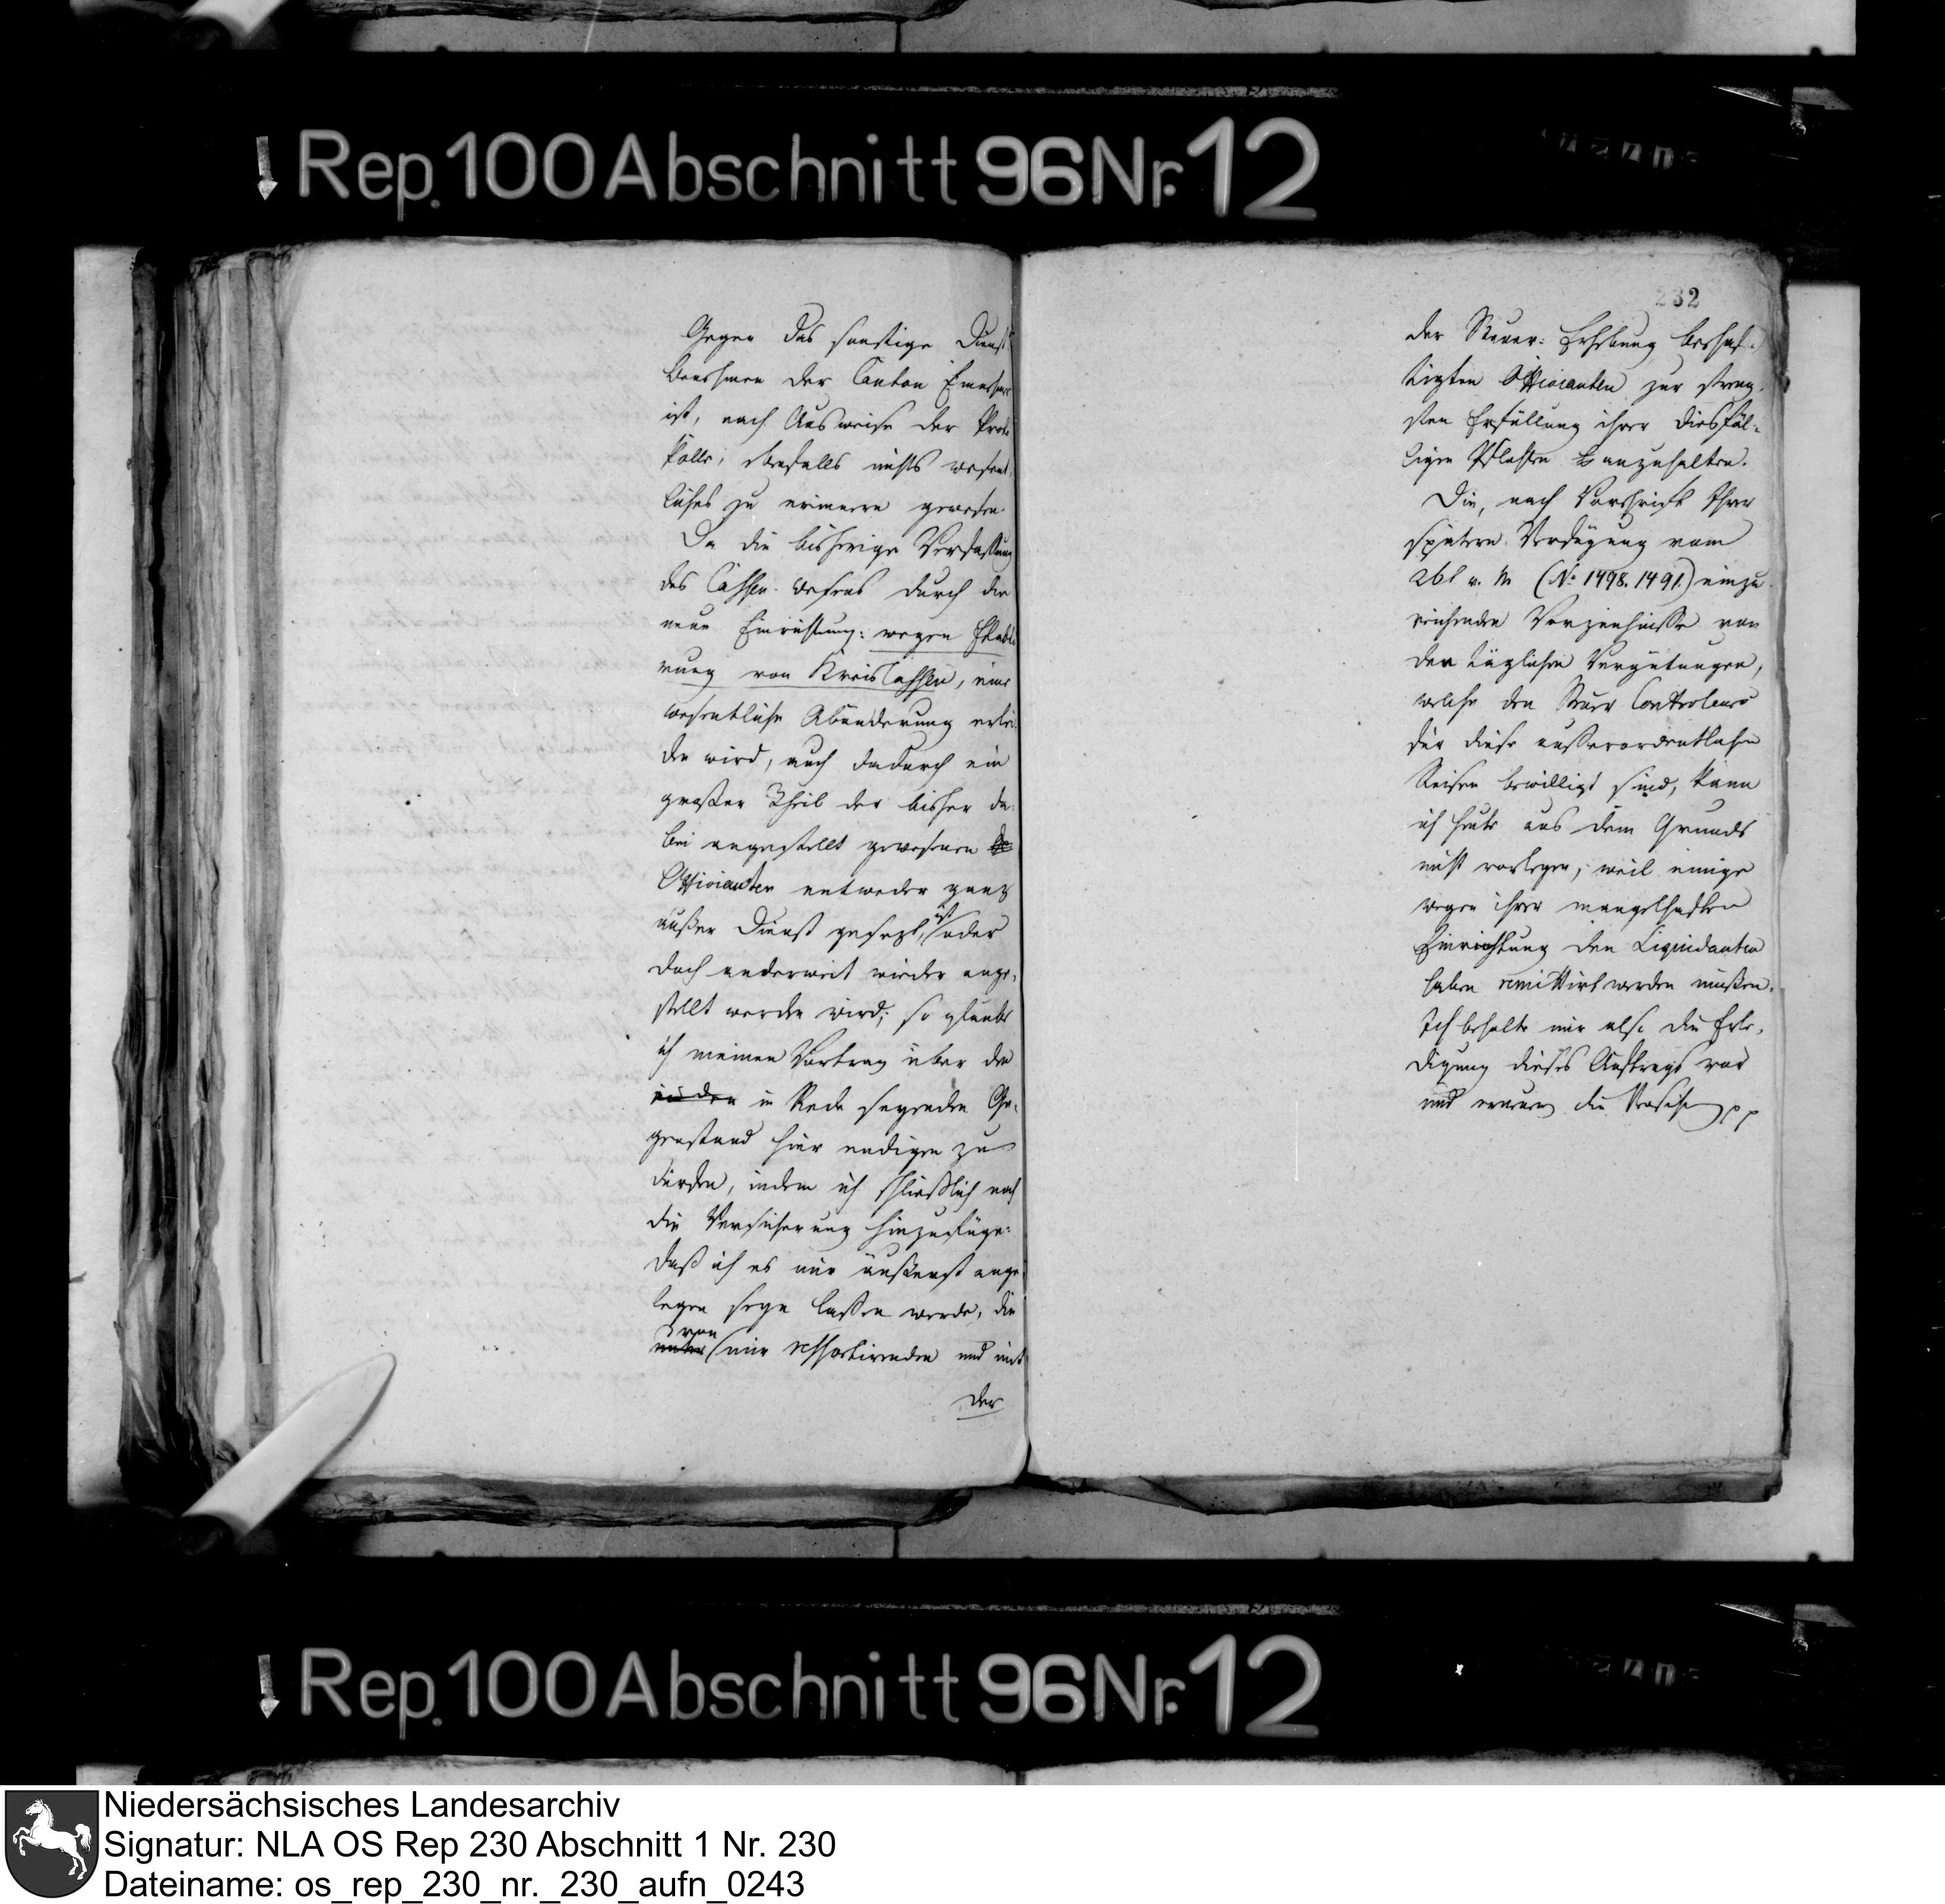 Rep. 100 Abschnitt 96 Nr. 12
Gegen das sonstige Dienst
Benehmen der Canton Einnehmer
ist, nach Ausweise der Proto
kolle, ebenfalls nichts wesent
liches zu erinnern gewesen.
Da die bisherige Verfassung
des Cassen-Wesens durch die
neue Einrichtung: wegen Etabli
rung von KreisCassen, eine
wesentliche Abänderung erlei
den wird, auch dadurch ein
großer Theil der bisher da
bei angestellt gewesenen
Officianten entweder ganz
außer Dienst gesezt, ist oder
doch anderweit wieder ange,
stellt werden wird; so glaube
ich meinen Vortrag über den
in Rede seyenden Ge,
genstand hier endigen zu
dürfen, indem ich schließlich noch
die Versicherung hinzufüge:
daß ich es mir äußerst ange
legen seyn lassen werde, die
unter von mir ressortirenden und mit
der
232
der Steuer: Erhebung beschäf-
tigten Officianten zur streng
sten Erfüllung ihrer diesfäl-
ligen Pflichten anzuhalten.
Die, nach Vorschrift Ihrer
spätern Verfügung vom
26t v. M (No 1498. 1491.) einzu
reichenden Verzeichnisse von
den täglichen Vergütungen,
welche den Steuer Controleurs
für diese außerordentlichen
Reisen bewilligt sind, kann
ich heute aus dem Grunde
nicht vorlegen, weil einige
wegen ihrer mangelhaften
Einrichtung den Liquidanten
haben remittirt werden müßen.
Ich behalte mir also die Erle,
digung dieses Auftrags vor
und erneuere die pp
Rep. 100 Abschnitt 96 Nr. 12
Niedersächsisches Landesarchiv
Signatur: NLA OS Rep 230 Abschnitt 1 Nr. 230
Dateiname: os_rep_230_nr._230_aufn_0243